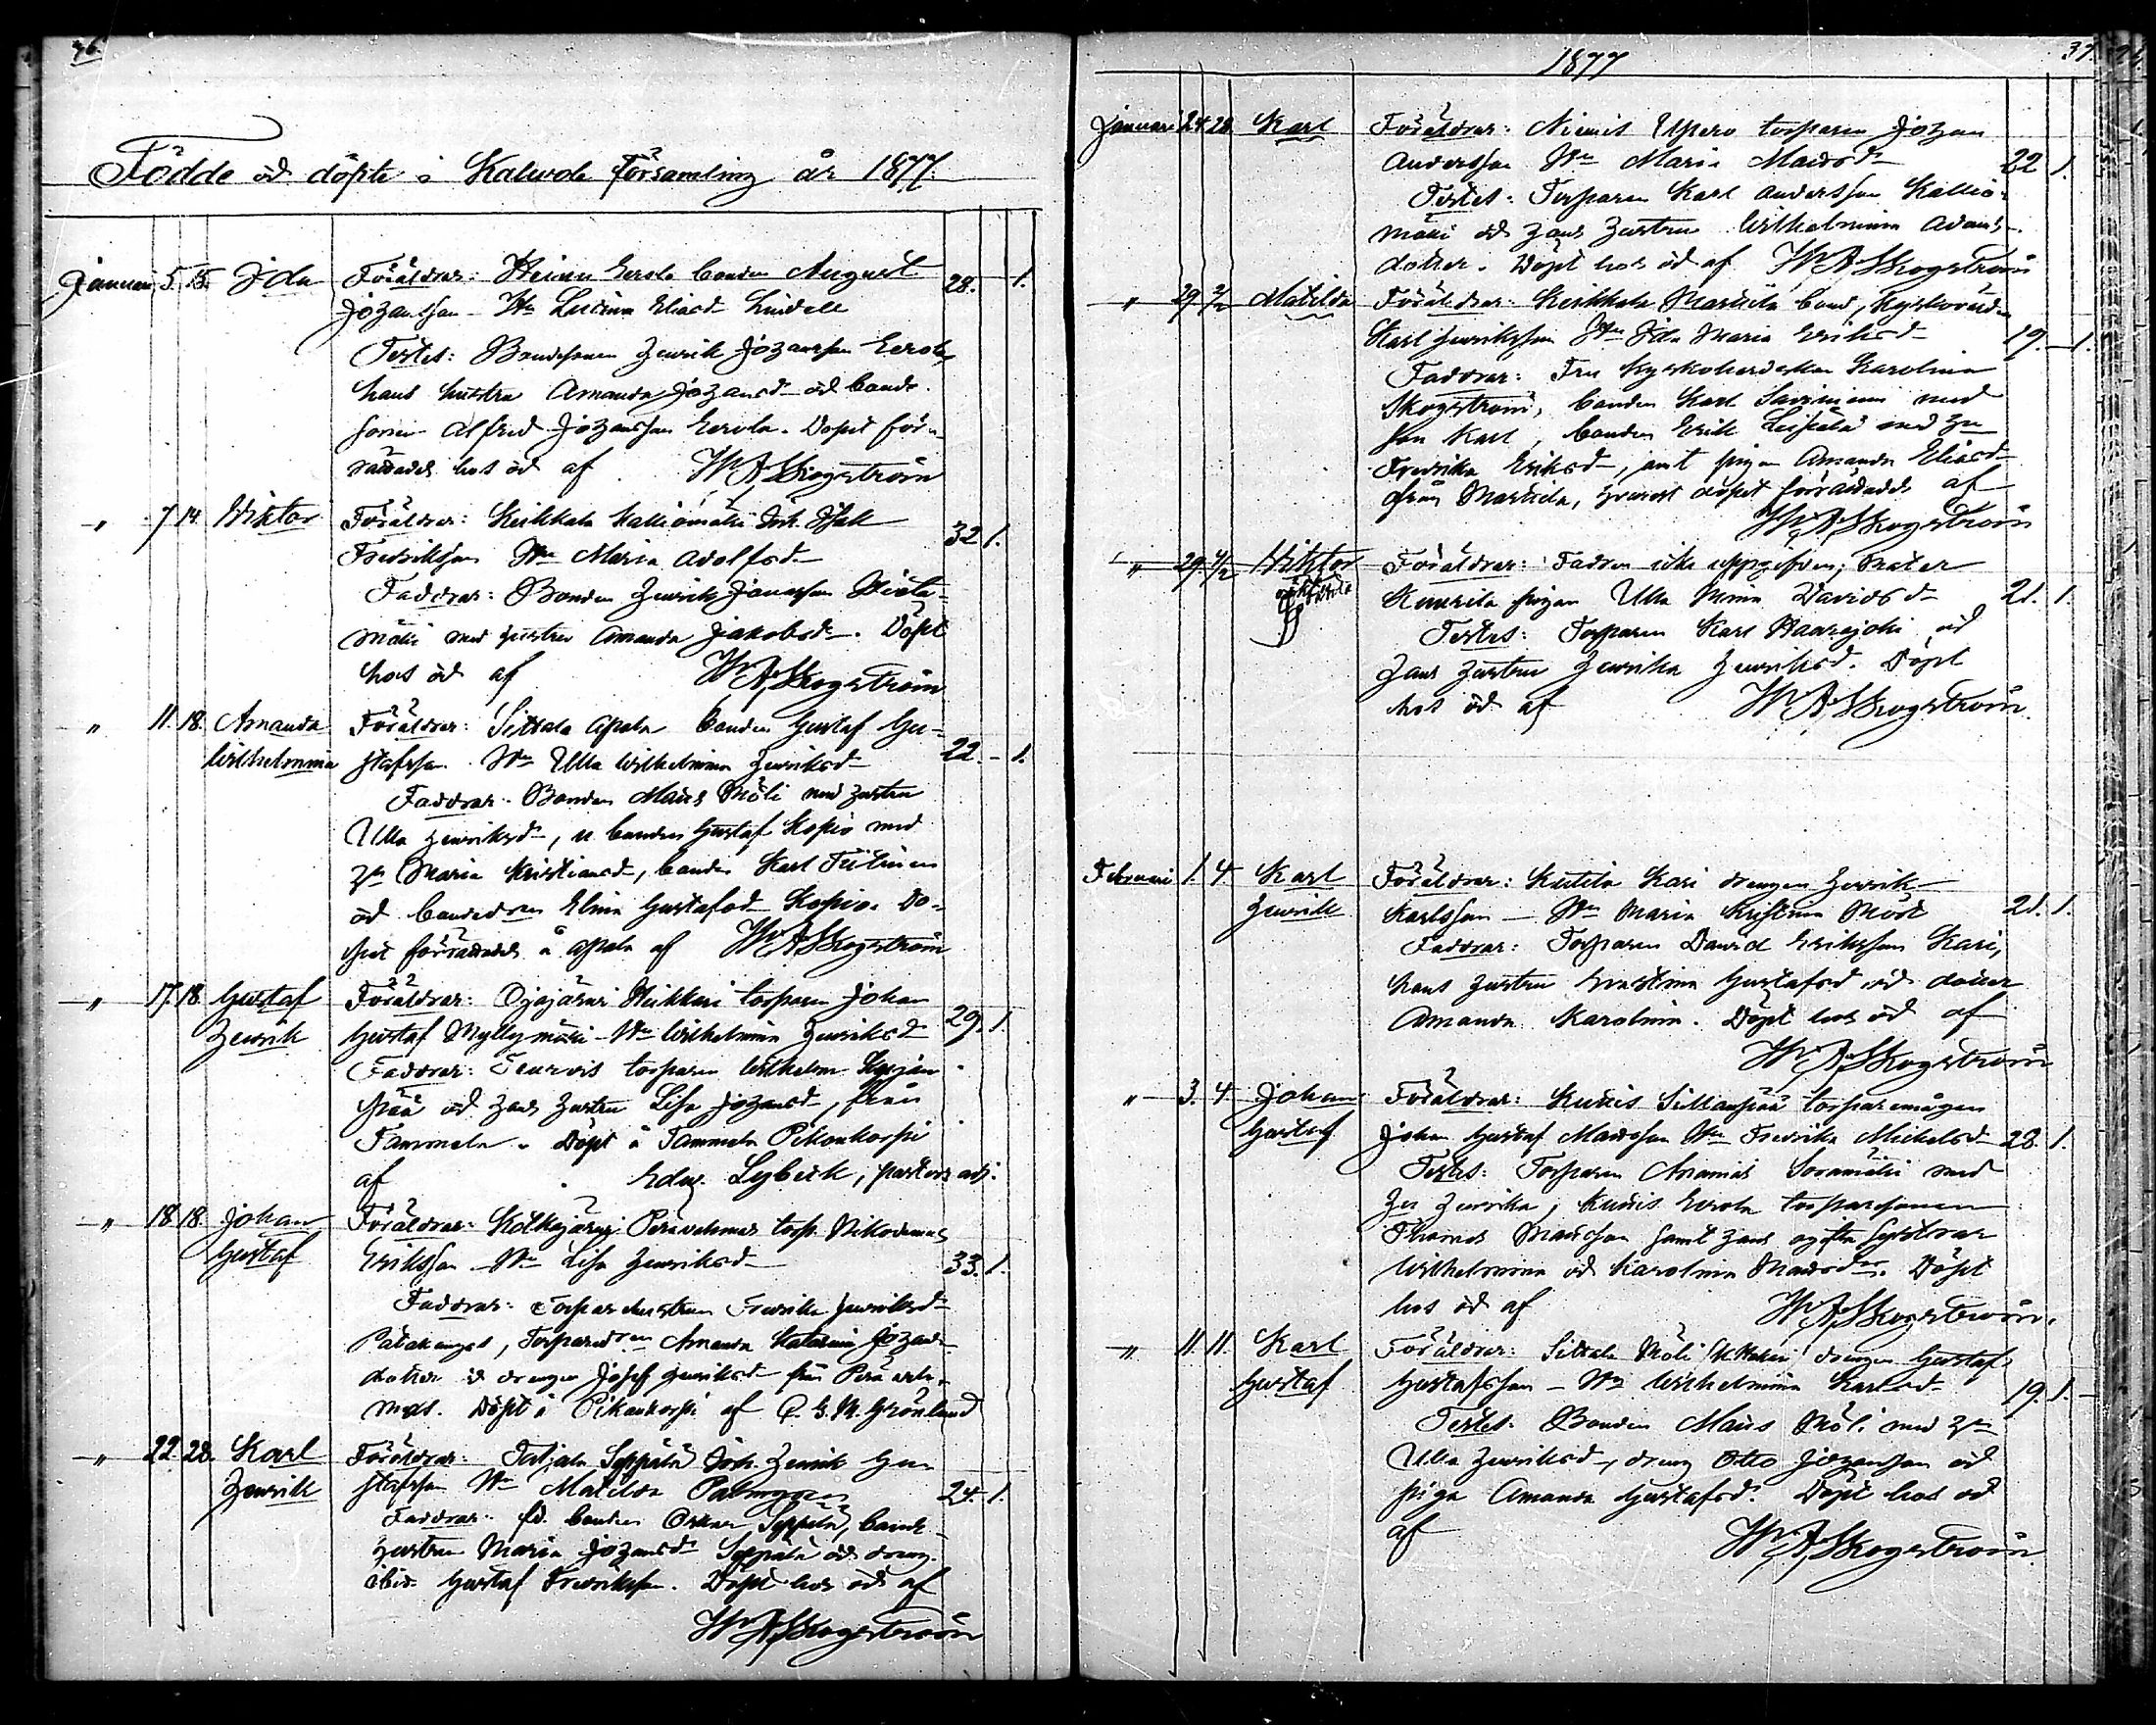 36.
Födde och döpte i Kalvola församling år 1877.
Januari 5. 15. Ida Föräldrar: Heinu Eerola bonden August 28. - 1.
Johansson - Hu Lucina Eliasd Lindell
Testes: Bondesonen Henrik Johansson Eerola,
hans hustru Amanda Johansd och bonde-
sonen Alfred Johansson Eerola. Dopet för-
rättades hos och af W A Skogström
" 7 14. Wiktor Föräldrar: Keikkala Kalliomäki
Fredriksson Hu Maria Adolfsd 32. 1.
Faddrar: Bonden Henrik Jonasson
mäki med hustru Amanda Jakobsd. Döpt
hos och af W A Skogström
" 11. 18. Amanda Föräldrar: Sittala Apala bonden Gustaf Gu-
Wilhelmina stafsson. Hu Ulla Wilhelmina Henriksd 22. - 1.
Faddrar: Bonden Mats Möli med hustru
Ulla Henriksd, u. bonden Gustaf Kopio med
hu Maria Kristiansd, bonden Karl
och bondedren Elina Gustafsd Kopio. Do-
pet förrättades å Apala af W A Skogström
" 17. 18. Gustaf Föräldrar: Ojajärvi Heikkari torparen Johan
Henrik Gustaf Myllymäki - Hu Wilhelmina Henriksd 29. 1.
Faddrar: torparen Wilhelm
pää och hans hustru Lisa Johansd, från
Tammela. Döpt å Tammela Pikonkorpi
af Edv. Lybeck, pastors adj.
" 18 18. Johan Föräldrar: Kotkajärvi torp. Nikodemus
Gustaf Eriksson Hu Lisa Henriksd 33. 1.
Faddrar: Torparehustrun Fredrika Henriksd
Torparedren Amanda Katarina Johans-
dotter och drengen Josef Henriksd från
Döpt i Pikonkorpi af C. G. M. Grönlund
" 22. 28. Karl Föräldrar: Taljala Seppälä Henrik Gu-
Henrik stafsson Hu Matilda Palmgren 24. 1.
Faddrar: fd. bonden Oskar Seppälä, bonde-
hustrun Maria Johansd Seppälä och dreng.
ibid. Gustaf Fredriksson. Döpt hos och af
W A Skogström
1877 37.
Januari 24. 28. Karl Föräldrar: Niemis Upero torparen Johan
Andersson Hu Maria Matsd 22 1.
Testes: Torparen Karl Andersson Kallio-
mäki och hans hustru Wilhelmina Adams-
dotter. Döpt hos och af W A Skogström
" 29. 2/2 Matilda Föräldrar: Keikkala Marttila bond, Kyrkovärden
Karl Henriksson Hu Ida Maria Eriksd 19. - 1.
Faddrar: Fru Kyrkoherdeskan Karolina
Skogström, bonden Karl Savinainen med
son Karl, bonden Erik Leipälä med hu
Fredrika Eriksd, samt pigan Amanda Eliasd
från Marttila, hvarest dopet förrättades af
W A Skogström
" 29. 4/2 Wiktor Föräldrar: Fadren icke uppgifven; Mater
oäkta pigan Ulla Mina Davidsd 21. 1.
Testes: Torparen Karl Haarajoki och
hans hustru Henrika Henriksd. Döpt
hos och af W A Skogström
Februari 1. 4. Karl Föräldrar: Kutila Kari drengen Henrik
Henrik Karlsson - Hu Maria Kristina Möst 21. 1.
Faddrar: Torparen David Eriksson Kari,
hans hustru Kristina Gustafsd och dotter
Amanda Karolina. Döpt hos och af
W A Skogström
" 3. 4. Johan Föräldrar: Kuuris Sillanpää torparemågen
Gustaf Johan Gustaf Matsson Hu Fredrika Michelsd 23. 1.
Testes: Torparen Ananias med
hu Henrika, Kuuris Eerola torparesonen
Thomas Matsson samt hans ogifta systrar
Wilhelmina och Karolina Matsdr. Döpt
hos och af W A Skogström.
" 11. 11. Karl Föräldrar: Sittala Möli drengen Gustaf
Gustaf Gustafsson - Hu Wilhelmina Karlsd 19. 1.
Testes: Bonden Mats Möli med hu
Ulla Henriksd, dreng Otto Johansson och
piga Amanda Gustafsd. Döpt hos och
af W A Skogström